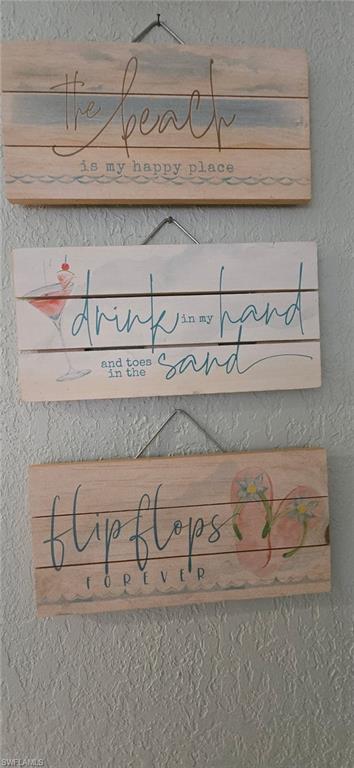 the beach
is my happy place
drink in my hand
and toes
in the sand
flip flops
FOREVER
SWFLAMLS